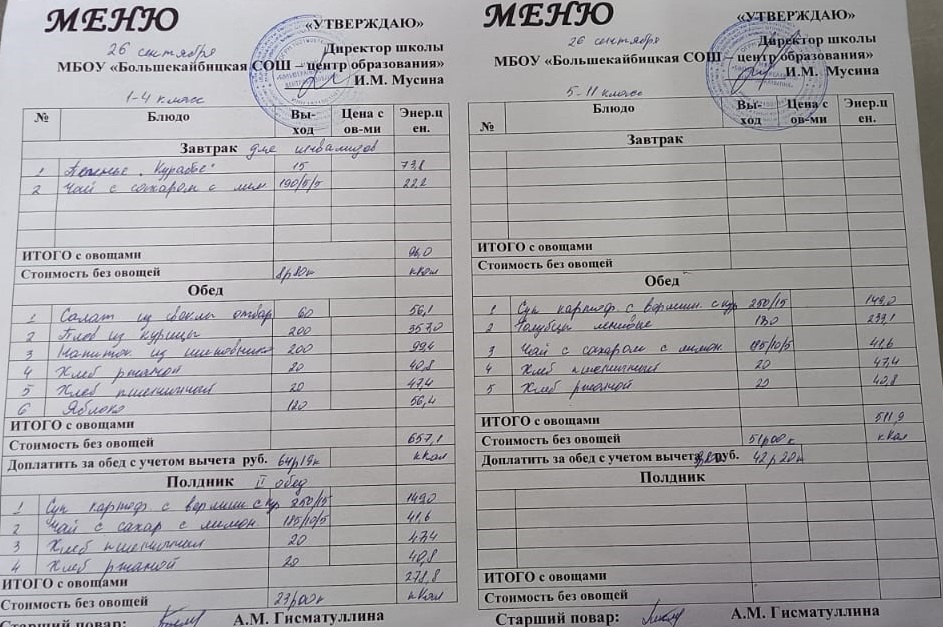 МЕНЮ
«УТВЕРЖДАЮ»
26 сентября
Директор школы
МБОУ «Большекайбицкая СОШ – центр образования»
И.М. Мусина
1-4 класс
№ Блюдо Вы-ход Цена с ов-ми Энер.ц ен.
Завтрак для инвалидов
1 Печенье "Курабье" 15
2 Чай с сахаром с лим 190/5/5 22,2
ИТОГО с овощами
Стоимость без овощей 8р80к кКал
Обед
1 Салат из свеклы отвар 60 56,1
2 Плов из курицы 200 357,0
3 Напиток из шиповника 200 99,4
4 Хлеб ржаной 20 40,8
5 Хлеб пшеничный 20 47,4
6 Яблоко 120 56,4
ИТОГО с овощами
Стоимость без овощей 657,1
Доплатить за обед с учетом вычета руб. 64р19к кКал
Полдник II обед
1 Суп картоф. с вермиш. с кур 250/15 149,0
2 Чай с сахар с лимон. 185/10/5 41,6
3 Хлеб пшеничный 20 47,4
4 Хлеб ржаной 20 40,8
ИТОГО с овощами 278,8
Стоимость без овощей 23р00к кКал
Старший повар: А.М. Гисматуллина
МЕНЮ
«УТВЕРЖДАЮ»
26 сентября
Директор школы
МБОУ «Большекайбицкая СОШ – центр образования»
И.М. Мусина
5-11 класс
№ Блюдо Вы-ход Цена с ов-ми Энер.ц ен.
Завтрак
ИТОГО с овощами
Стоимость без овощей
Обед
1 Суп картоф. с вермиш. с кур 250/15 149,0
2 Голубцы ленивые
3 Чай с сахаром с лимон. 185/10/5 41,6
4 Хлеб пшеничный 20 47,4
5 Хлеб ржаной 20 40,8
ИТОГО с овощами 511,9
Стоимость без овощей 51р00к кКал
Доплатить за обед с учетом вычета руб. 42р20к
Полдник
ИТОГО с овощами
Стоимость без овощей
Старший повар: А.М. Гисматуллина